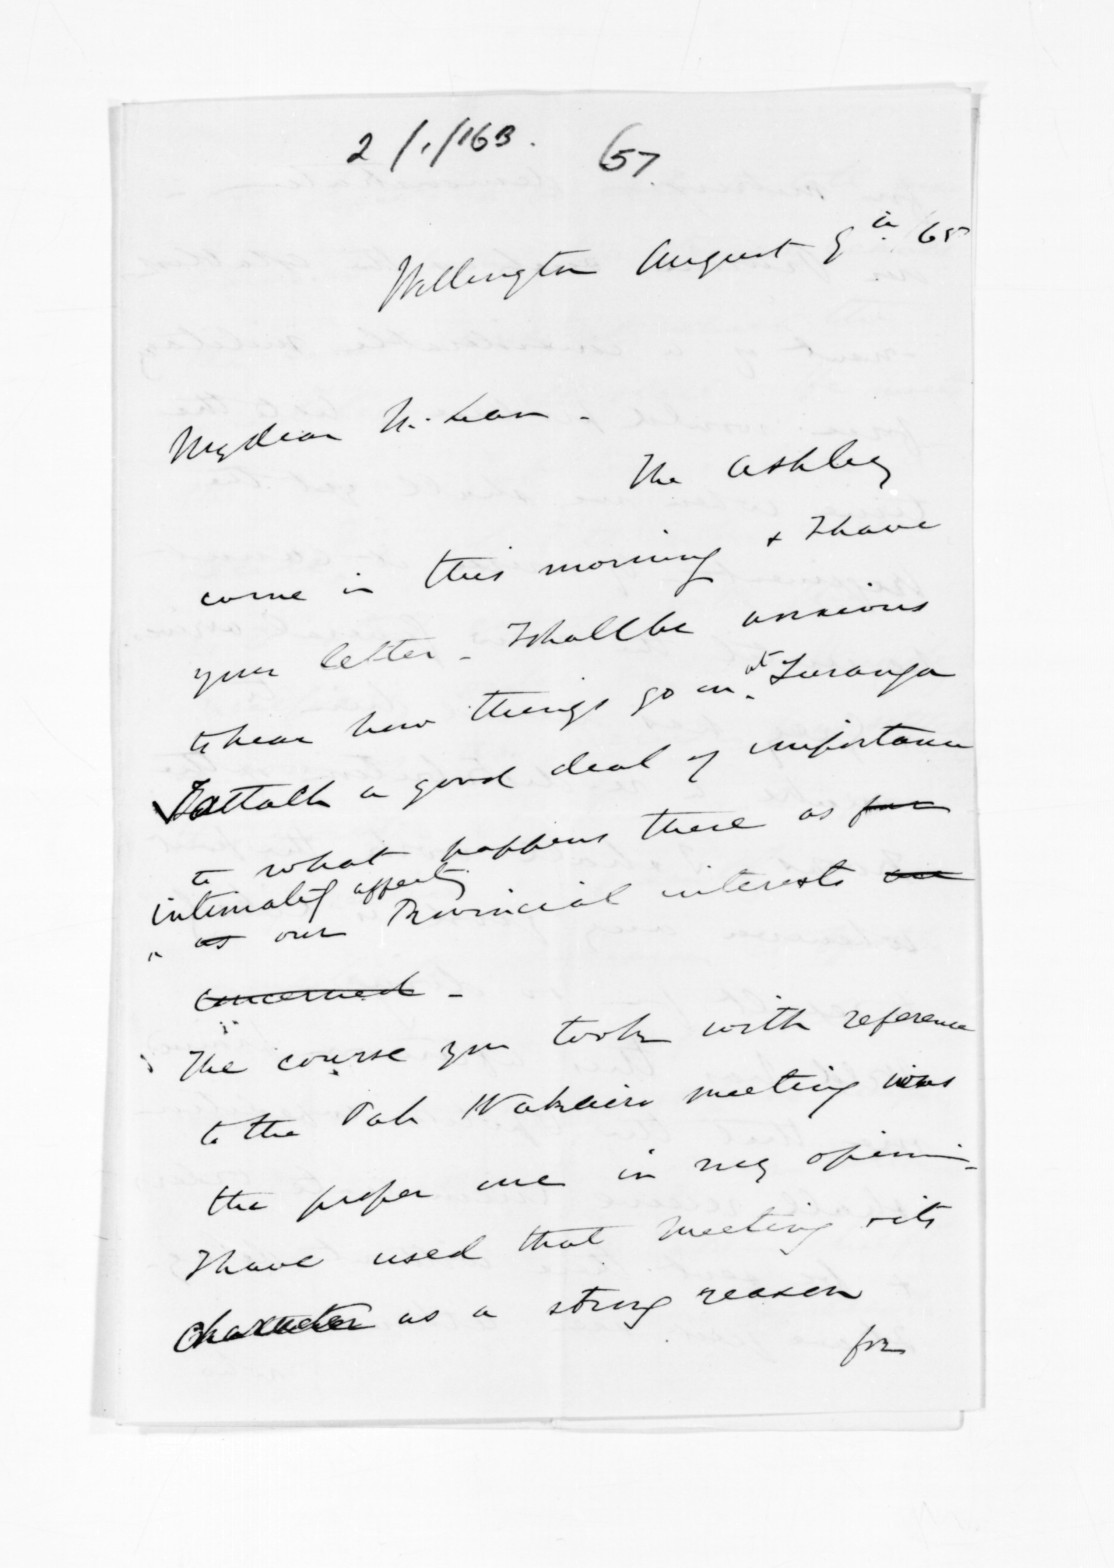 2/1/163. 657
Wellington August 9th /65
My dear McLean -
The Ashley
come in this morning & I have
your letter - I shall be anxious
to hear how things go on at Turanga
I attach a good deal of importance
to what happens there as for
intimately affecting
as our Provincial interests are
concerned -
The course you took with reference
to the Pah Wakairo meeting was
the proper one in my opinion -
I have used that meeting & its
character as a strong reason
for